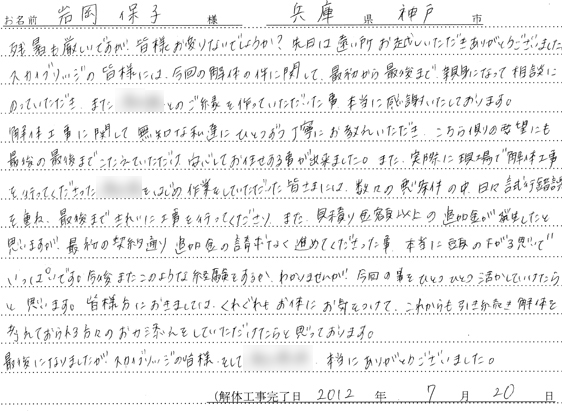 お名前 岩岡 保子 様 兵庫 県 神戸 市
残暑も厳しいですが、皆様お変りないでしょうか? 先日は遠い所お越しいただきありがとうございました
スカイブリッジの皆様には、今回の解体の件に関して、最初から最後まで、親身になって相談に
のっていただき、また とのご縁を作っていただいた事、本当に感謝いたしております。
解体工事に関して無知な私達にひとつひとつ丁寧にお教えいただき、こちら側の要望にも
最後の最後までこたえていただけ、安心してお任せする事が出来ました。また、実際に現場で解体工事
を行ってくださった をはじめ作業をしていただいた皆さまには、数々の悪条件の中、日々試行錯誤
を重ね、最後まできれいに工事を行ってくださり、また、見積り金額以上の追加金が発生したと
思いますが、最初の契約通り追加金の請求なく進めてくださった事、本当に頭の下がる思いで
いっぱいです。今後またこのような経験をするか、わかりませんが、今回の事をひとつひとつ活かしていけたら
と思います。皆様方におきましては、くれぐれもお体にお気をつけて、これからも引き続き解体を
考えておられる方々のお力添えをしていただけたらと思っております。
最後になりましたが、スカイブリッジの皆様、そして 、本当にありがとうございました。
(解体工事完了日 2012 年 7 月 20 日